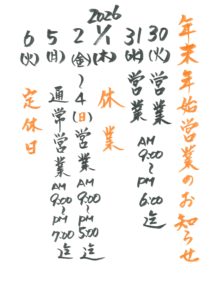 年末年始営業のお知らせ
30(火)営業 AM 9:00〜PM 6:00迄
31(水)営業
2026
1/1(木)休業
2(金)〜4(日)営業 AM 9:00〜PM 5:00迄
5(月)通常営業 AM 9:00〜PM 7:00迄
6(火)定休日